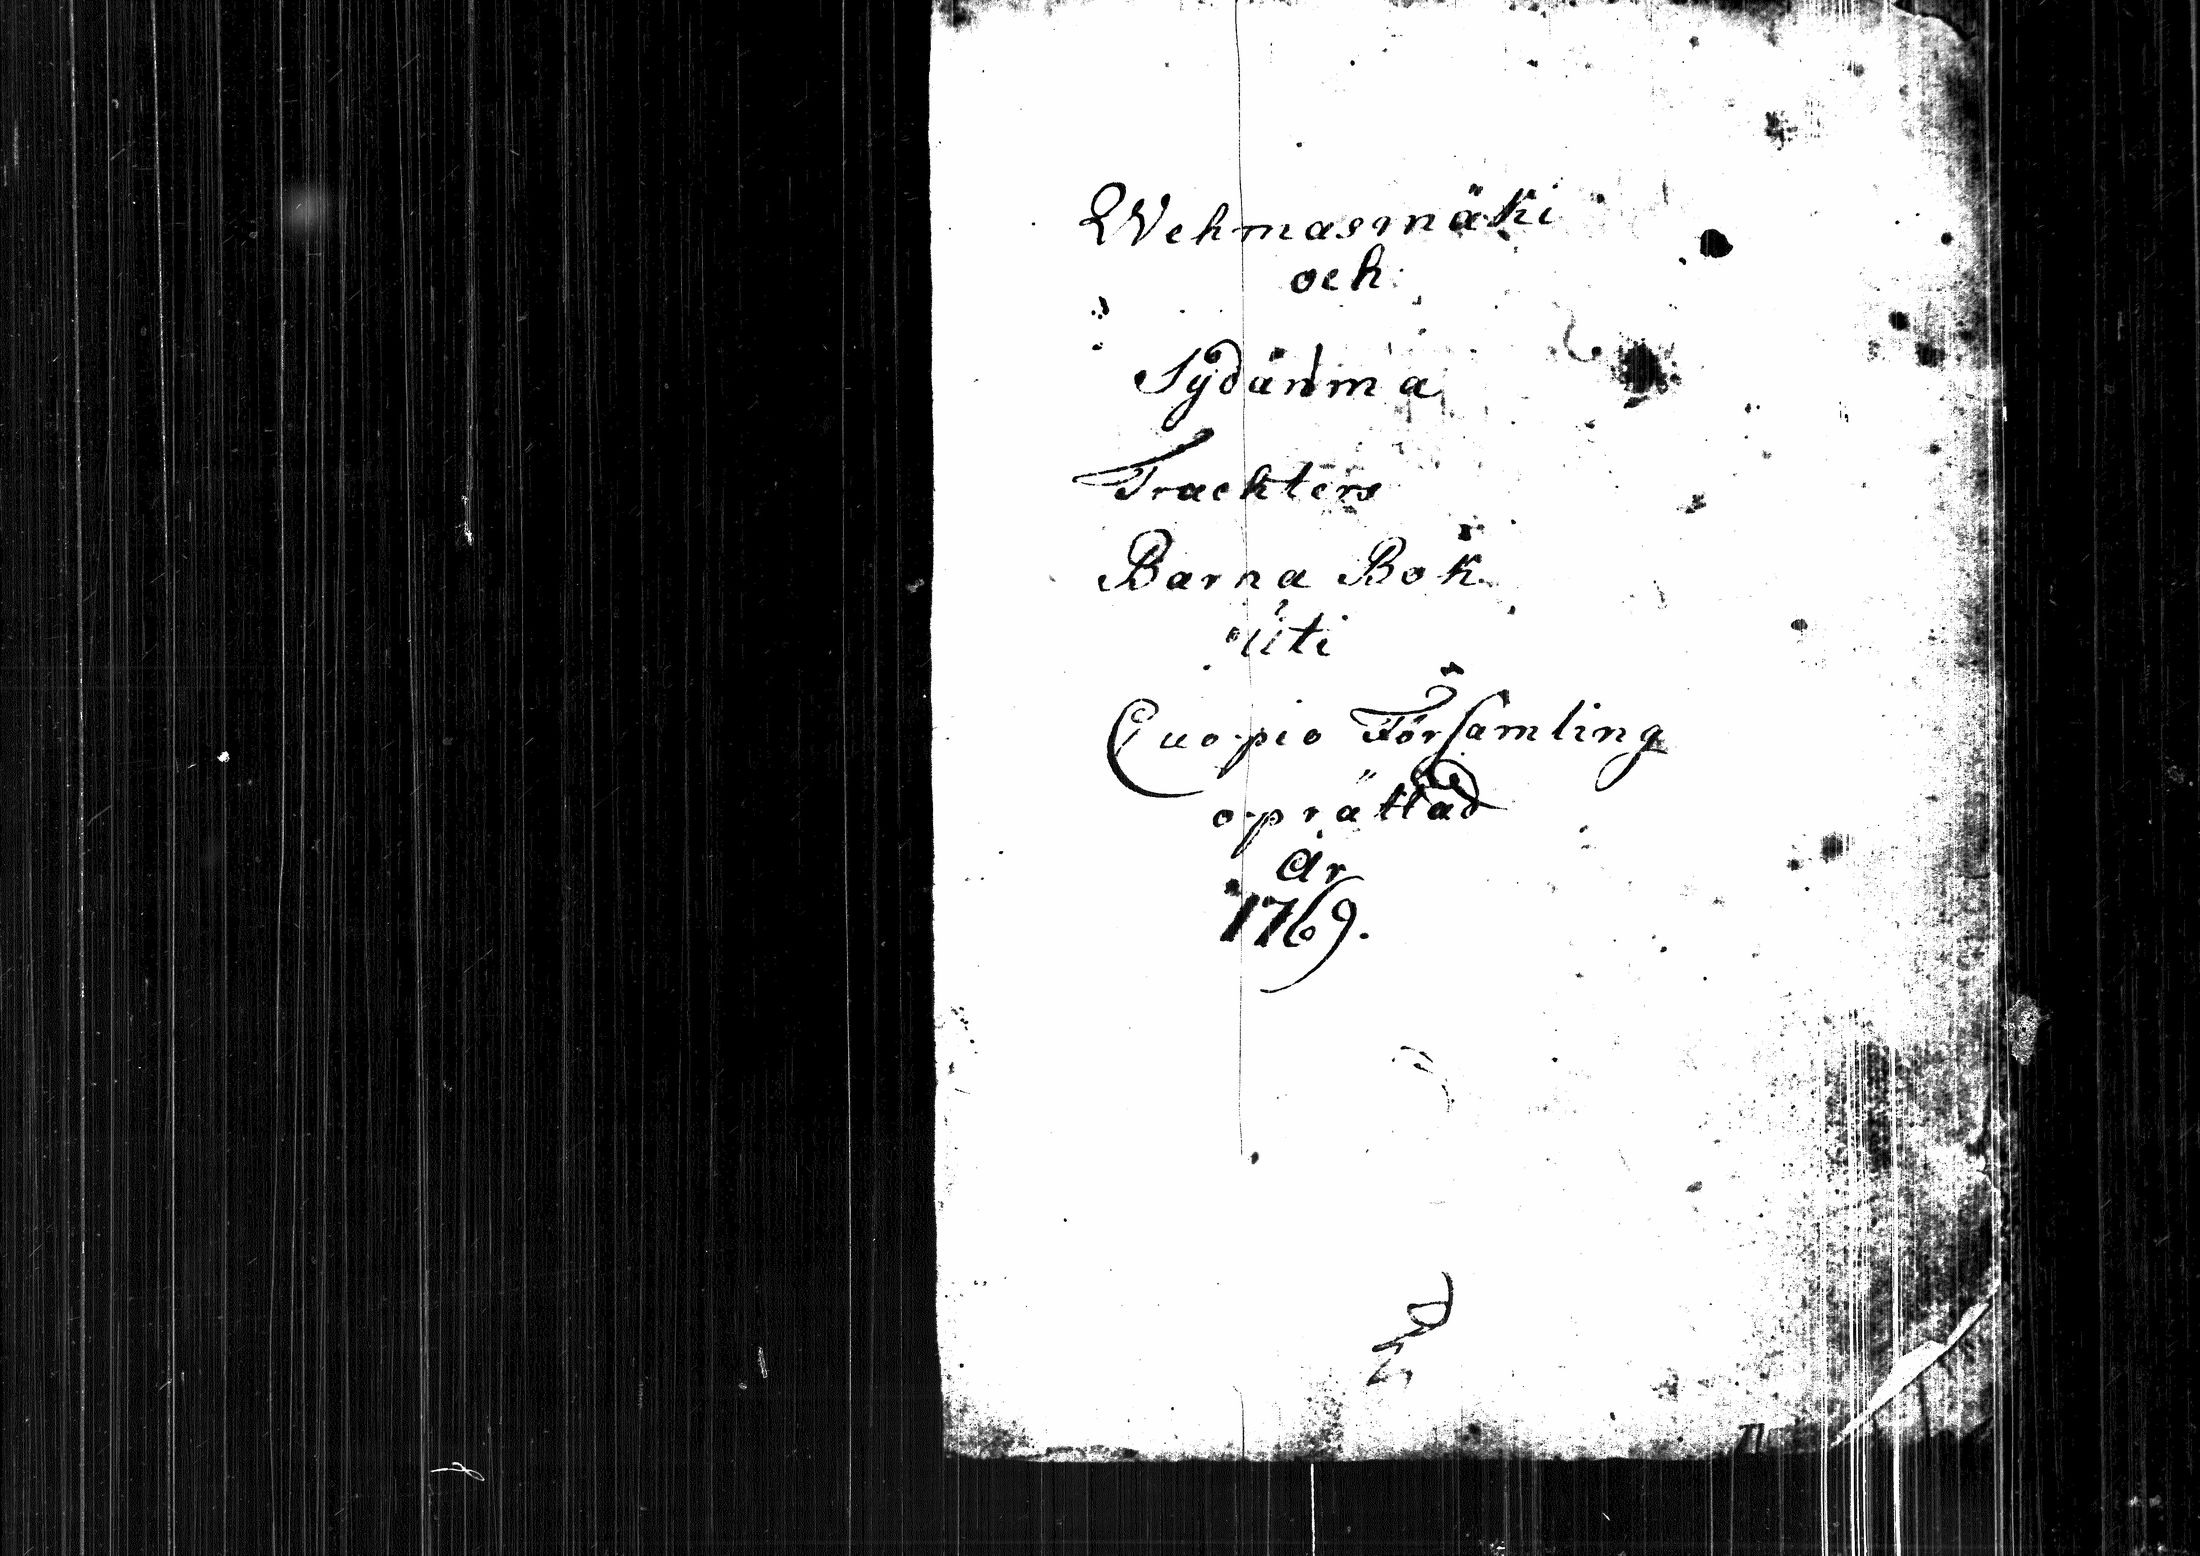 Wehmasmäki
och
Sydänma
Trackters
Barna Bok
uti
Cuopio Församling
oprättad
år
1769.